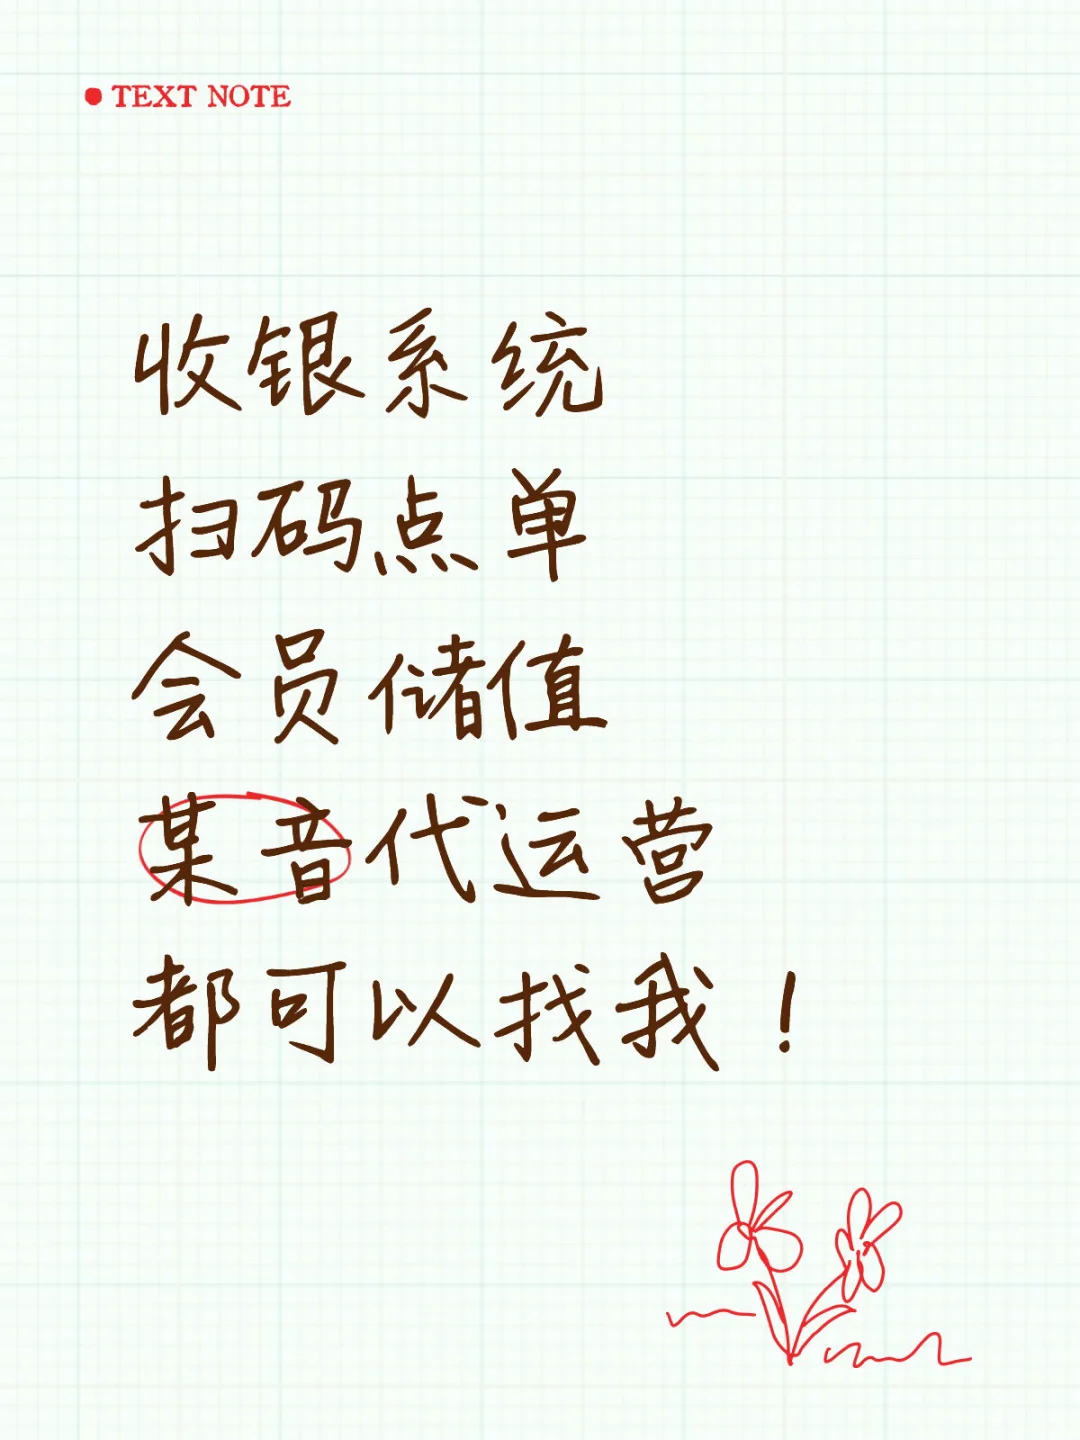 TEXT NOTE
收银系统
扫码点单
会员储值
某音代运营
都可以找我！